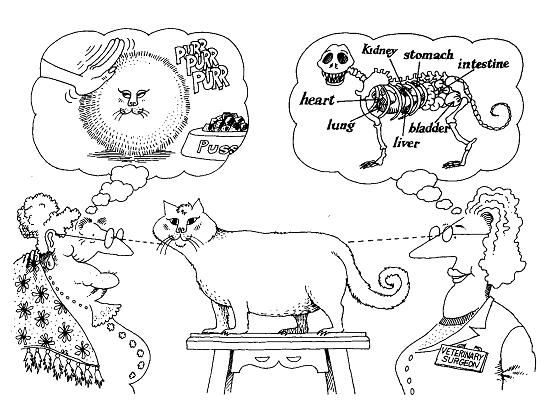 PURR
PURR
PURR
PUSS
kidney
stomach
intestine
heart
lung
bladder
liver
VETERINARY
SURGEON